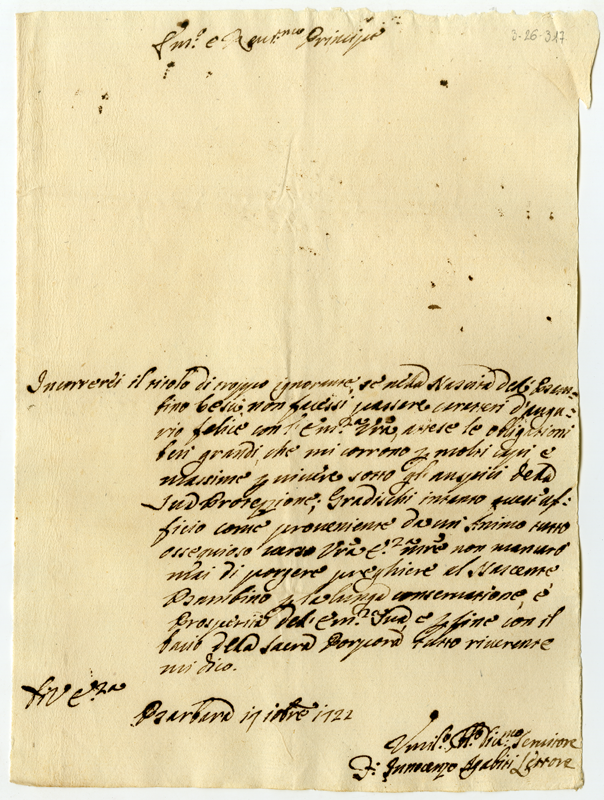 Em.o e Rev.mo Principe
3-26-317
Incorrerei il titolo di troppo ignorante, se nella Nascita del Bam-
bino Gesù non facessi passare caratteri d'augu-
rio felice con l'Em.za Vra, attese le obligationi
ben grandi, che mi corrono p molti capi e
massime p vivere sotto gl'auspici della
Sua Protezzione; Gradischi intanto quest'af-
ficio come proveniente da un Animo tutto
ossequioso verso Vra E.za mre non mancarò
mai di porgere preghiere al Nascente
Bambino p la lunga conservatione, e
Prosperità del Em.za Sua, e p fine con il
bacio della Sacra Porpora tutto riverente
mi dico.
Di V E.za
Barbara 19 xbre 1722
Umil.o Di.mo Servitore
F. Innocenzo Agabiti Lettore